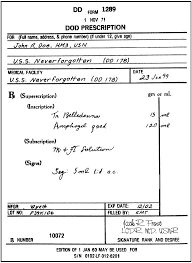 DD FORM 1289
1 NOV 71
DOD PRESCRIPTION
FOR (Full name, address, & phone number) (If under 12, give age)
John R. Doe, HM3, USN
U.S.S. Neverforgotten (DD 178)
MEDICAL FACILITY
U.S.S. Neverforgotten (DD 178)
DATE
23 Jan 99
℞ (Superscription)
gm or ml.
(Inscription)
Tr Belladonna 15
Amphogel qsad 120
(Subscription)
M & Ft Solution
(Signa)
Sig: 5 ml tid a.c.
MFGR: Wyeth
EXP DATE: 12/02
LOT NO:
FILLED BY: KMT
Jack R. Frost
LCDR, MC, USNR
℞ NUMBER
10072
SIGNATURE RANK AND DEGREE
EDITION OF 1 JAN 60 MAY BE USED FOR
S/N 0102-LF-012-6201